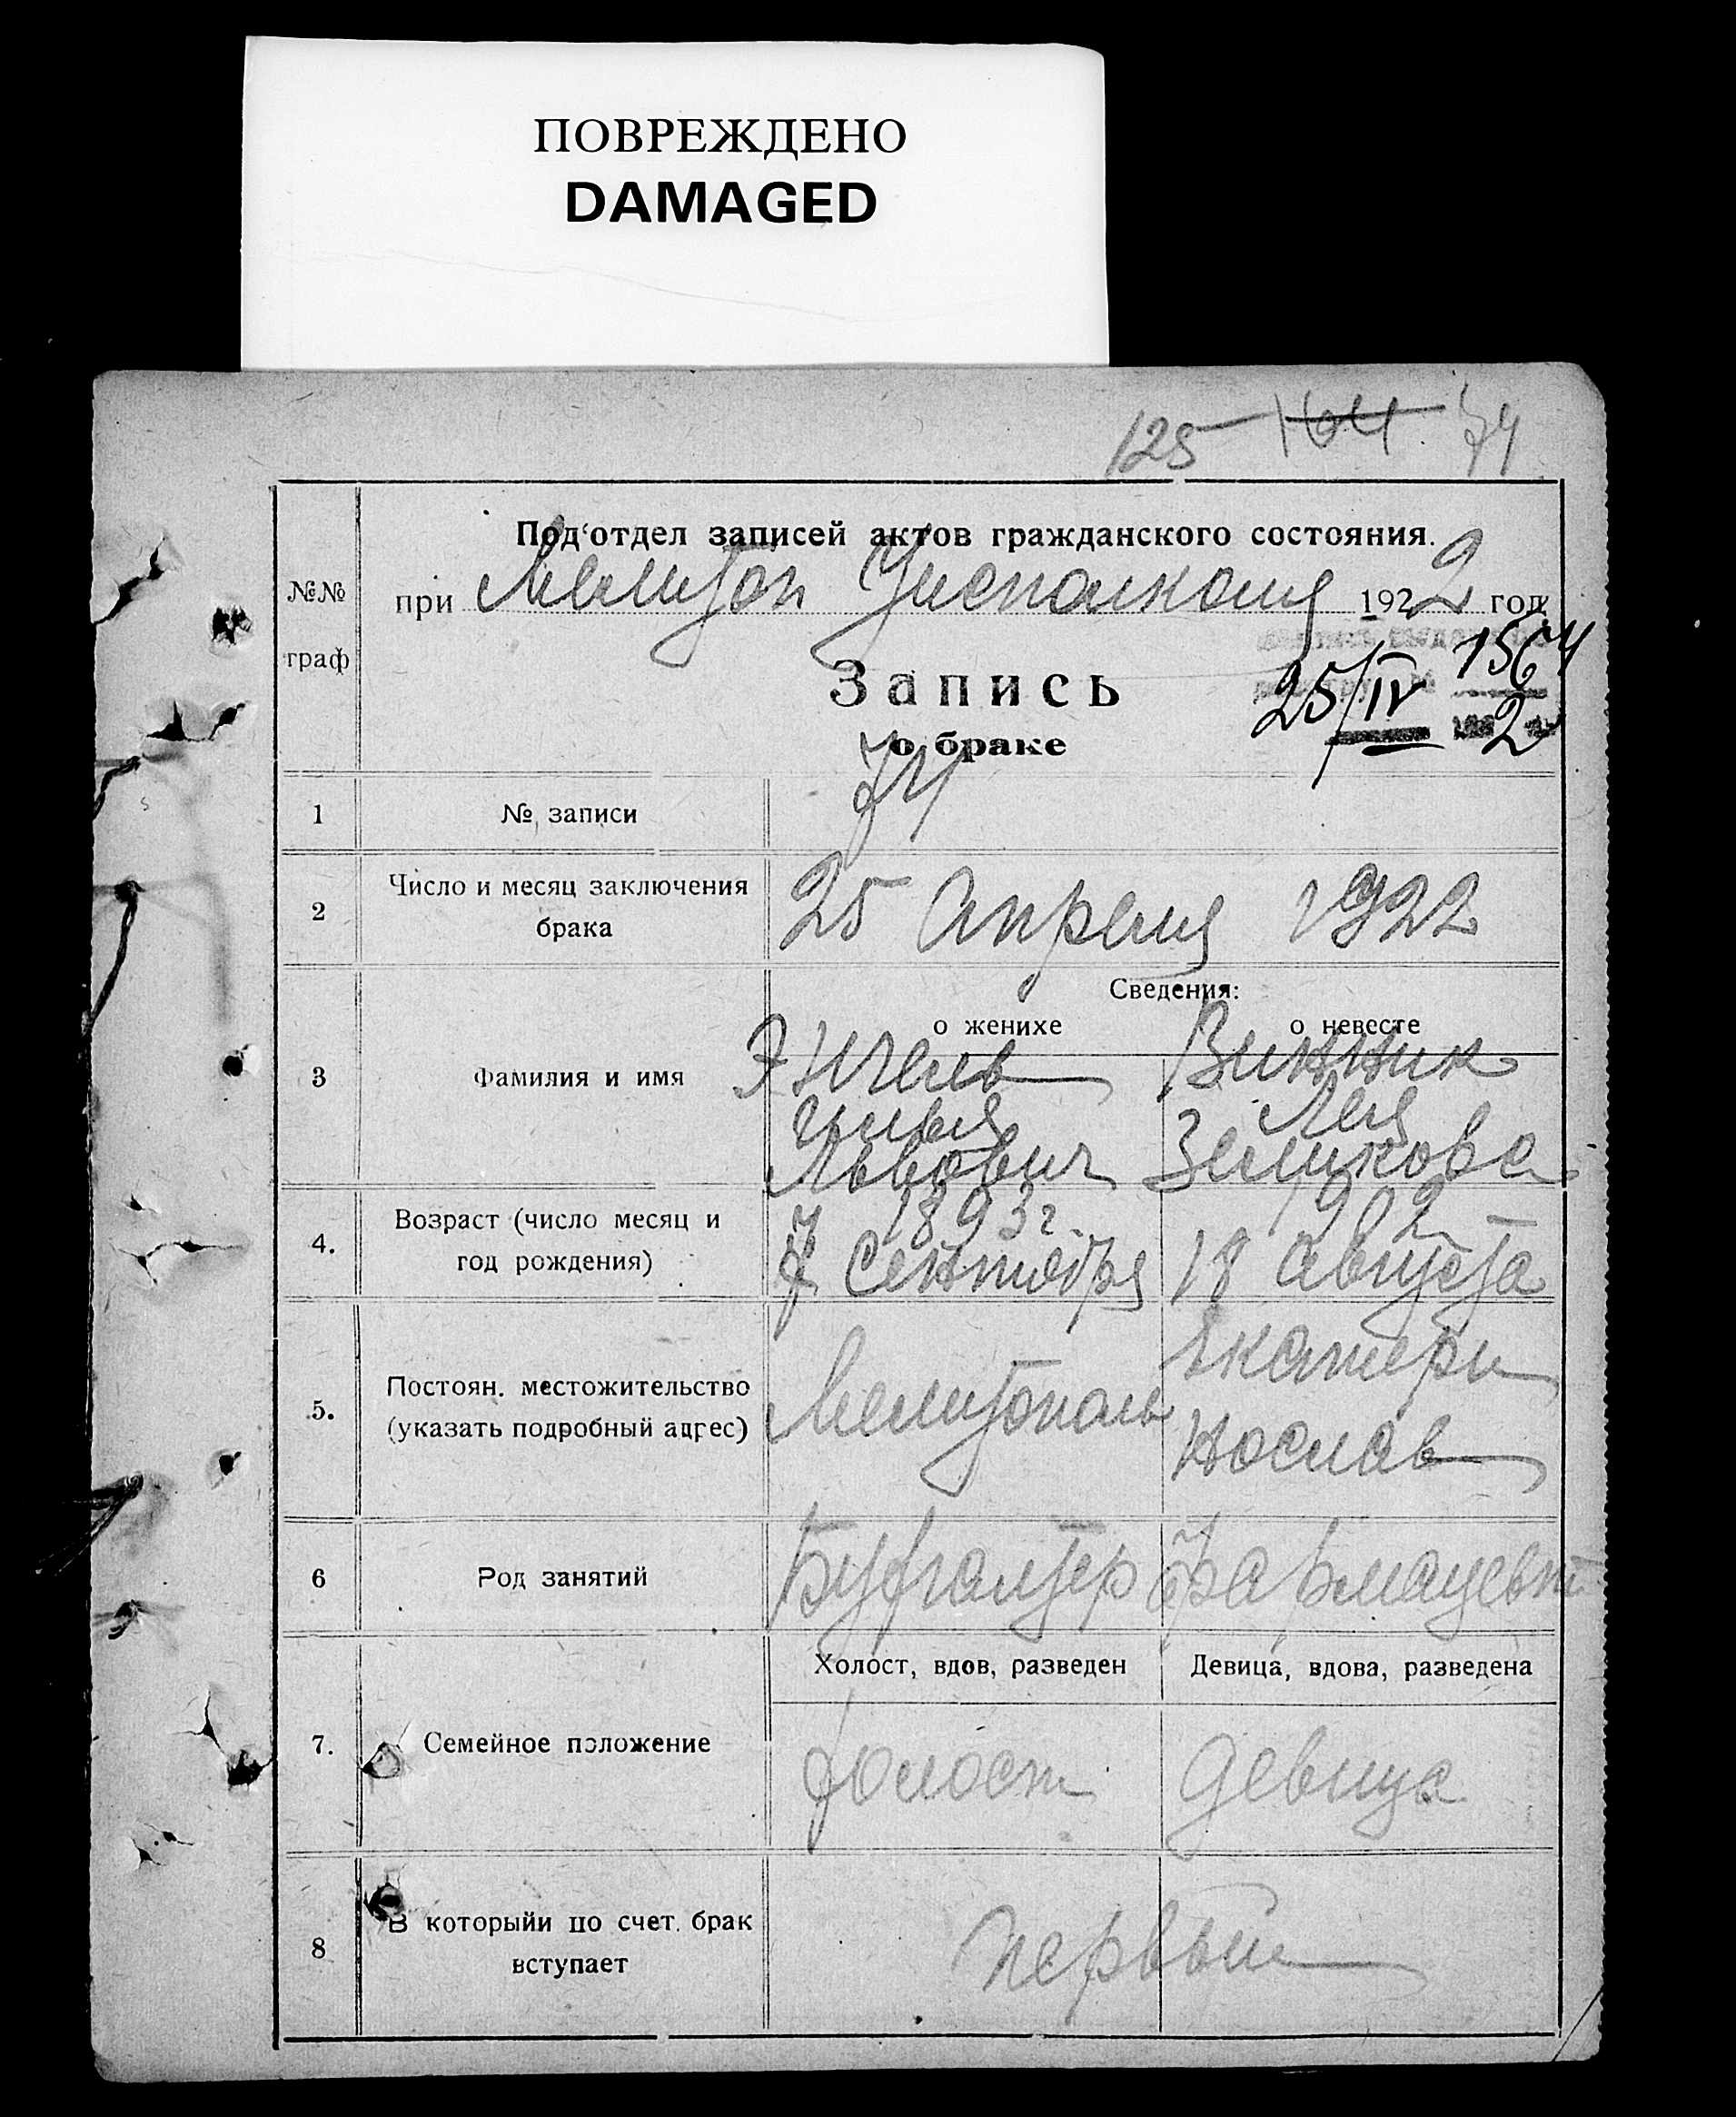 ПОВРЕЖДЕНО
DAMAGED
125 164 74
Под'отдел записей актов гражданского состояния.
№№
граф
при Мелитоп Уисполкома 1922 год
Запись
о браке
25/IV 1564
2
1 № записи 74
2 Число и месяц заключения
брака
25 Апреля 1922
Сведения:
о женихе о невесте
3 Фамилия и имя
Энгель Винник
Илья Лея
Львович Зеликова
4. Возраст (число месяц и
год рождения)
1893 г. 1902
7 Сентября 18 Августа
5. Постоян. местожительство
(указать подробный адрес)
Мелитополь
Екатери
нослав
6 Род занятий Бухгалтер Фармацевт
Холост, вдов, разведен Девица, вдова, разведена
7. Семейное положение холост девица
8 В которыйи по счет. брак
вступает
первый